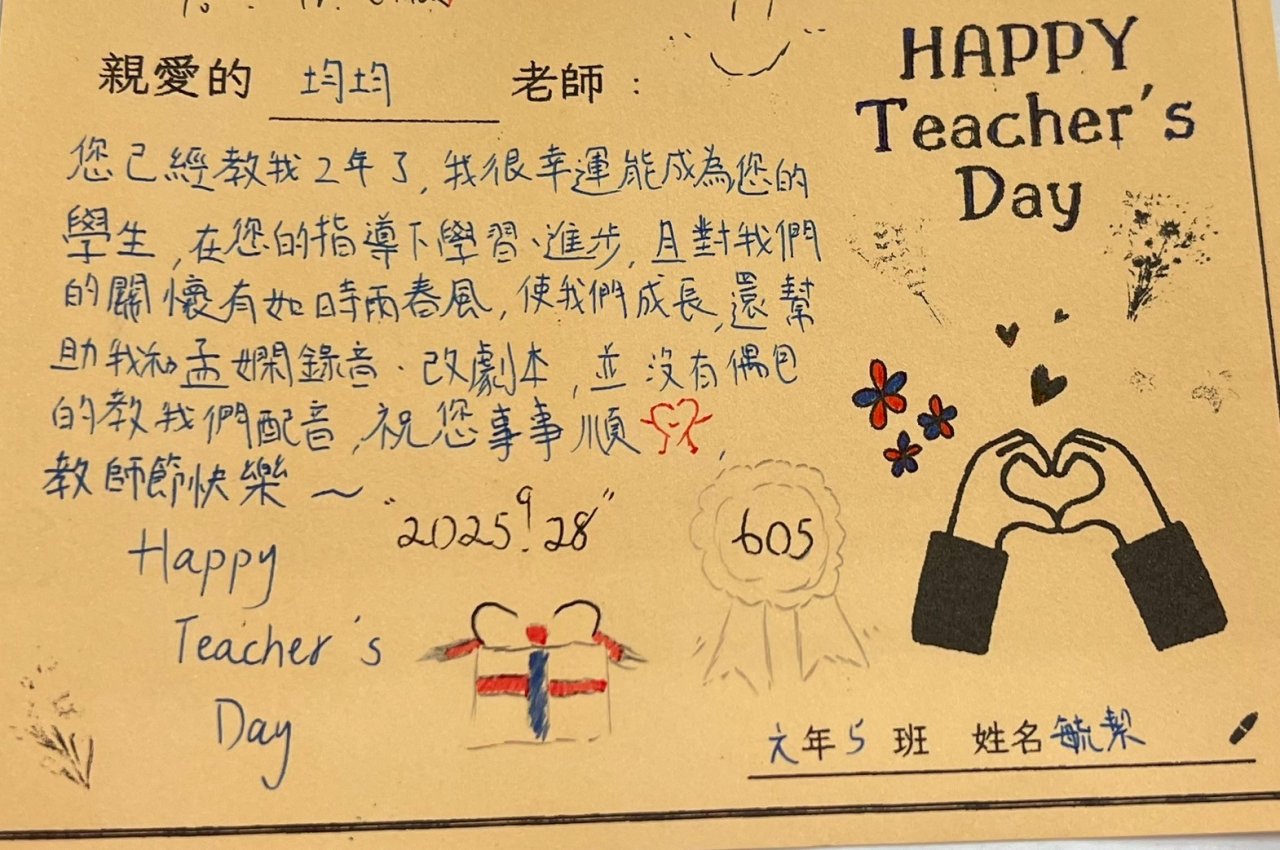 親愛的 均均 老師：
您已經教我2年了,我很幸運能成為您的
學生,在您的指導下學習、進步,且對我們
的關懷有如時雨春風,使我們成長,還幫
助我和孟嫻錄音、改劇本,並沒有偶包
的教我們配音,祝您事事順
教師節快樂～
"2025.9.28"
605
Happy
Teacher's
Day
HAPPY
Teacher's
Day
六年5班 姓名毓絜